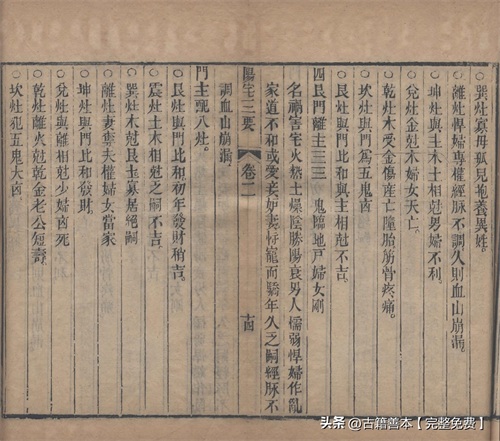 ○巽灶寡母孤兒抱養異姓。
○離灶悍婦專權經脉不調久則血山崩漏。
○坤灶與主土木相尅男婦不利。
○兌灶金尅木婦女夭亡。
○乾灶木受金傷産亡墮胎筋骨疼痛。
○坎灶與門爲五鬼凶
○艮灶與門比和與主相尅不吉。
四艮門離主三三 鬼臨地戸婦女剛
名禍害宅火熱土燥陰勝陽衰男人懦弱悍婦作亂
家道不和或愛妾妒妻恃寵而驕年久乏嗣經脉不
陽宅三要 卷二 十四
調血山崩漏。
門主配八灶。
○艮灶與門比和初年發財稍吉。
○震灶土木相尅乏嗣不吉。
○巽灶木尅艮土寡居絕嗣
○離灶妻奪夫權婦女當家
○坤灶與門比和發財。
○兌灶與離相尅少婦凶死
○乾灶離火尅乾金老公短壽。
○坎灶犯五鬼大凶
头条 @古籍善本【完整免费】